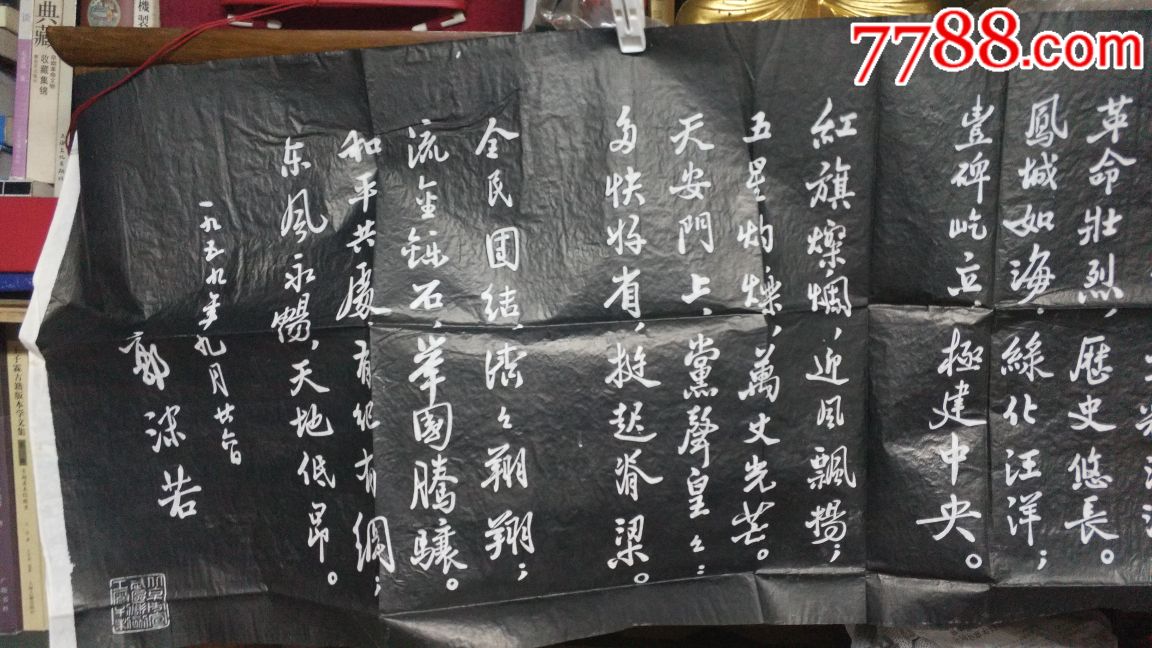 革命壯烈，歷史悠長。
鳳城如海，綠化汪洋；
豐碑屹立，極建中央。
紅旗燦爛，迎風飄揚；
五星灼爍，萬丈光芒。
天安門上，黨聲皇々：
多快好省，挺起脊梁。
全民團结，濟々翔翔；
流金鑠石，举國騰驤。
和平共處，有纪有綱；
东風永暢，天地低昂。
一九五九年九月廿六日
郭沫若
7788.com
典藏
收藏集锦
古籍版本学文集